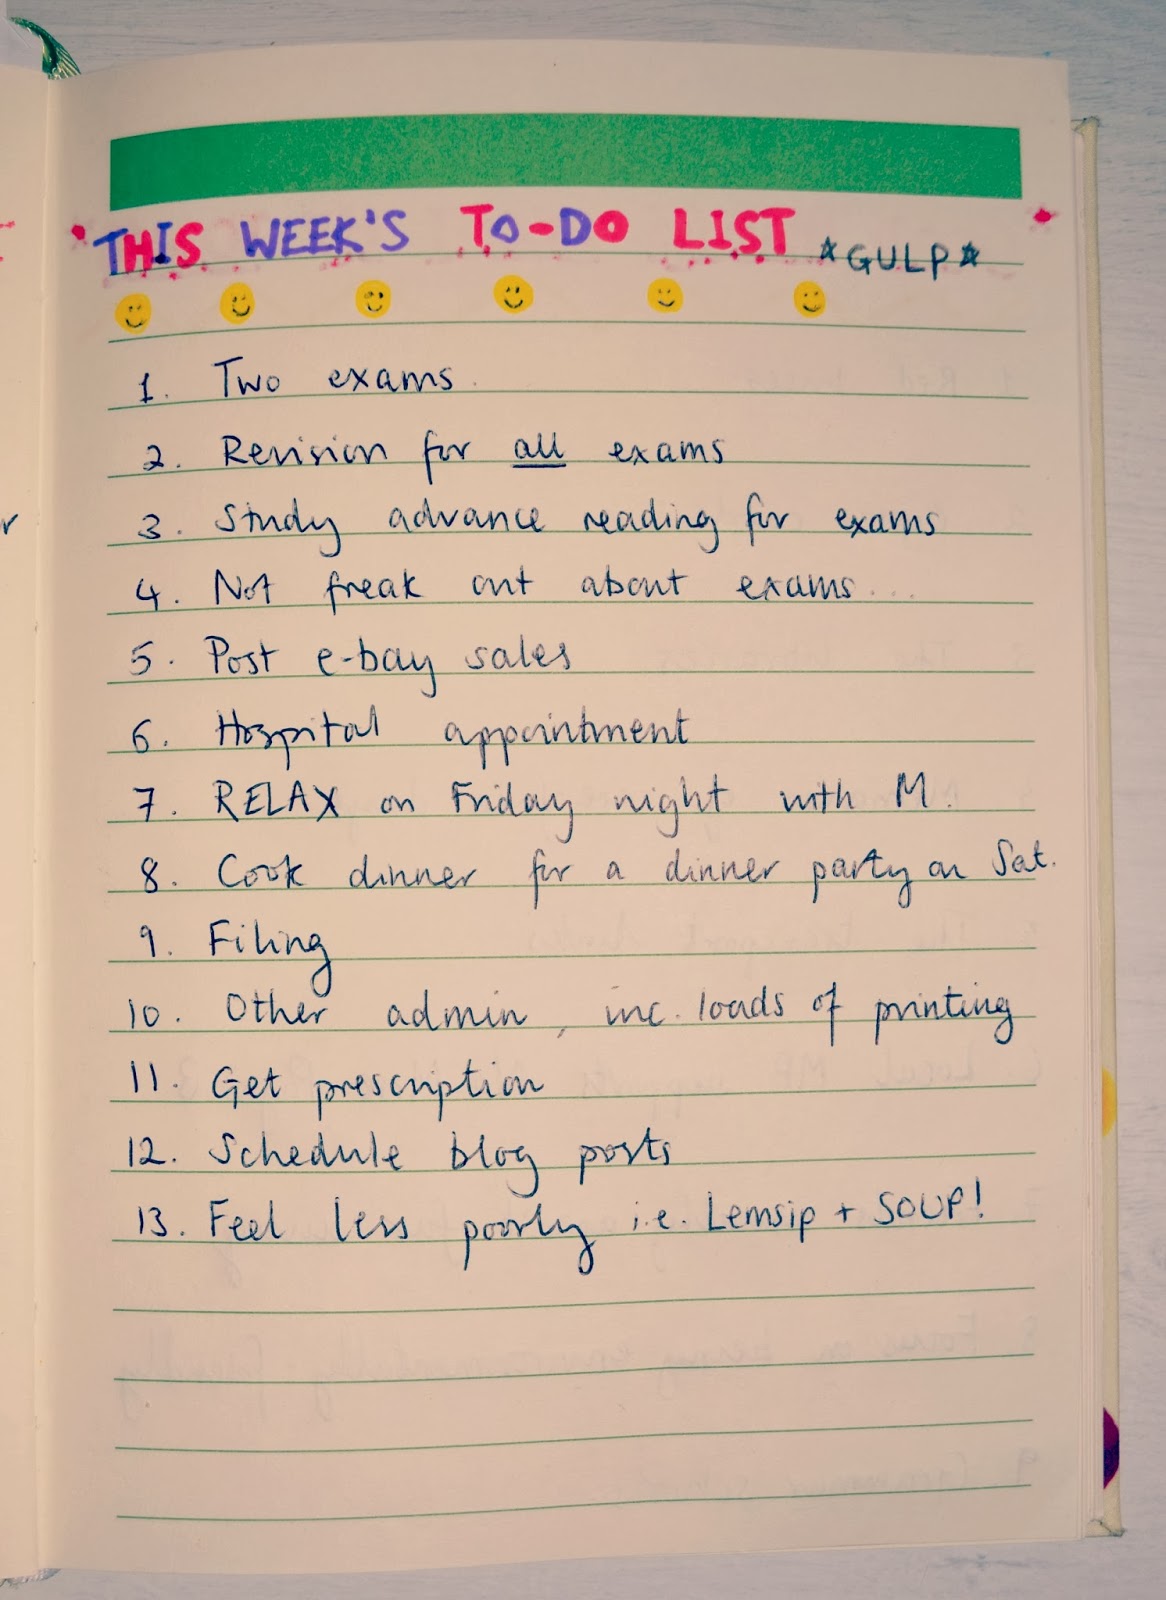 THIS WEEK'S TO-DO LIST *GULP*
1. Two exams.
2. Revision for all exams
3. Study advance reading for exams
4. Not freak out about exams...
5. Post e-bay sales
6. Hospital appointment
7. RELAX on Friday night with M.
8. Cook dinner for a dinner party on Sat.
9. Filing
10. Other admin, inc. loads of printing
11. Get prescription
12. Schedule blog posts
13. Feel less poorly i.e. Lemsip + SOUP!